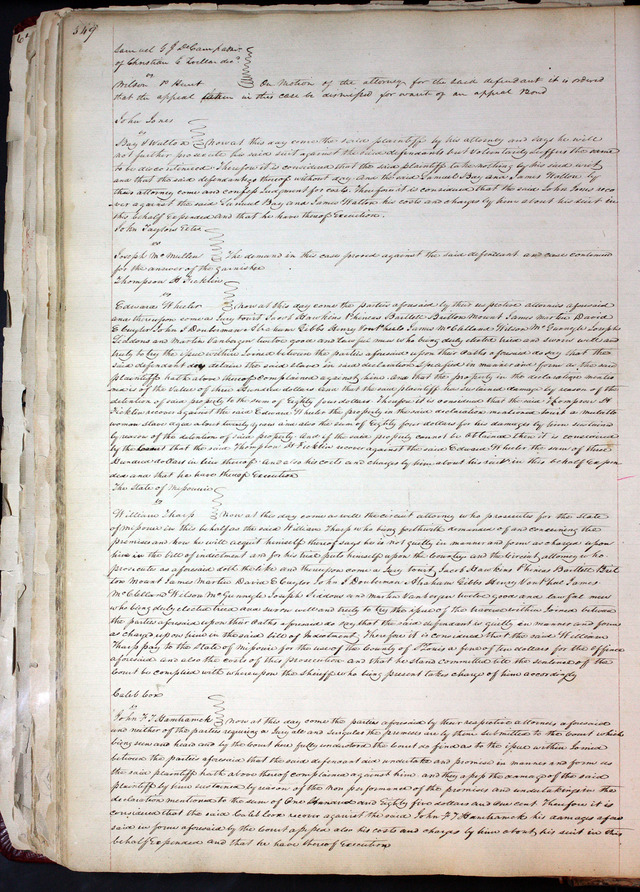 549
Samuel G J DeCamp admr
of Christian C Zeillen decd
vs
Wilson P Hunt On Motion of the attorney for the said defendant it is ordered
that the appeal in this case be dismissed for want of an appeal Bond
John Jones
vs
Bay & Walton Now at this day come the said plaintiff by his attorney and says he will
not further prosecute his said suit against the said defendants but voluntarily suffers the same
to be discontinued Therefore it is considered that the said plaintiff take nothing by his said writ
and that the said defendants go thereof without day And the said Samuel Bay and James Walton by
their attorney come and confess Judgment for costs. Therefore it is considered that the said John Jones reco
ver against the said Samuel Bay and James Walton his costs and charges by him about his suit in
this behalf expended and that he have thereof Execution.
John Taylors Exter
vs
Joseph McMullen The demand in this case proved against the said defendant and cause continued
for the answer of the garnishee
Thompson H Ficklin
vs
Edward Wheeler Now at this day come the parties aforesaid by their respective attornies aforesaid
and thereupon come a Jury towit Jacob Hawkins Phineas Bartlett Britton Mount James Martin David
E Cuyler John J Donberman Abraham Gibbs Henry Von Phul James McClelland Wilson McGunnegle Joseph
Siddons and Martin Vanbogen twelve good and lawful men who being duly elected tried and sworn well and
truly to try the issue within Joined between the parties aforesaid upon their Oaths aforesaid do say that the
said defendant doth detain the said slave in said declaration specified in manner and form as the said
plaintiff hath above thereof complained against him and that the property in the declaration mentio
ned is of the value of three hundred dollars And that the said plaintiff has sustained damage by reason of the
detention of said property to the sum of Eighty four dollars Therefore it is considered that the said Thompson H
Ficklin recover against the said Edward Wheeler the property in the said declaration mentioned towit a mulatto
woman slave aged about twenty years and also the sum of Eighty four dollars for his damages by him sustained
by reason of the detention of said property And if the said property cannot be obtained then it is considered
by the Court that the said Thompson H Ficklin recover against the said Edward Wheeler the sum of three
Hundred dollars in lieu thereof And also his costs and charges by him about his suit in this behalf expen
ded and that he have thereof Execution
The State of Missouri
vs
William Tharp Now at this day come as well the circuit attorney who prosecutes for the State
of Missouri in this behalf as the said William Tharp who being forthwith demanded of and concerning the
premises and how he will acquit himself thereof says he is not guilty in manner and form as charged upon
him in the bill of indictment and for his trial puts himself upon the Country and the Circuit attorney who
prosecutes as aforesaid doth the like and thereupon come a Jury towit Jacob Hawkins Phineas Bartlett Brit
ton Mount James Martin David E Cuyler John J Donberman Abraham Gibbs Henry Von Phul James
McClelland Wilson McGunnegle Joseph Siddons and Martin Vanbogen twelve good and lawful men
who being duly elected tried and sworn well and truly to try the issue of the traverse within Joined between
the parties aforesaid upon their Oaths aforesaid do say that the said defendant is guilty in manner and form
as charged upon him in the said bill of indictment Therefore it is considered that the said William
Tharp pay to the State of Missouri for the use of the County of St Louis a fine of ten dollars for the offence
aforesaid and also the costs of this prosecution and that he stand committed till the sentence of the
Court be complied with whereupon the Sheriff who being present takes charge of him accordingly
Caleb Cox
vs
John F. T. Hamtramck Now at this day come the parties aforesaid by their respective attorneys aforesaid
and neither of the parties requiring a Jury all and singular the premises are by them submitted to the Court which
being seen and heard and by the Court here fully understood the Court do find as to the issue within Joined
between the parties aforesaid that the said defendant did undertake and promise in manner and form as
the said plaintiff hath above thereof complained against him and they assess the damage of the said
plaintiff by him sustained by reason of the Non performance of the promises and undertakings in the
declaration mentioned to the sum of One Hundred and Eighty five dollars and one cent Therefore it is
considered that the said Caleb Cox recover against the said John F T Hamtramck his damages afore
said in form aforesaid by the Court assessed also his costs and charges by him about his suit in this
behalf expended and that he have thereof Execution